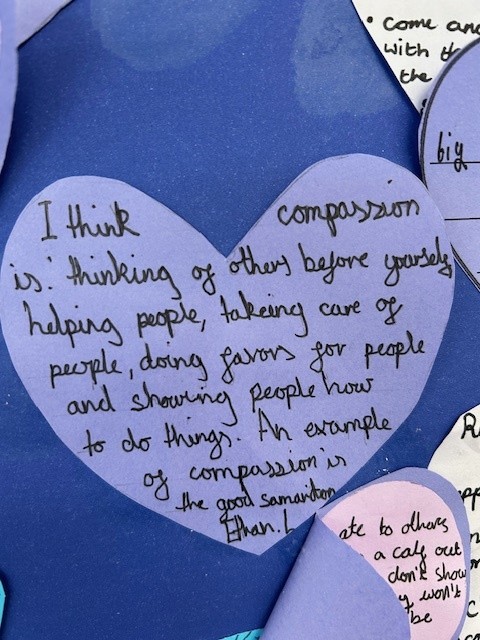 I think compassion
is: thinking of others before yourself,
helping people, takeing care of
people, doing favors for people
and showing people how
to do things. An example
of compassion is
the good samariton
Ethan.L
• come and
with
the
big
ate to others
a caly out
don't show
won't
be